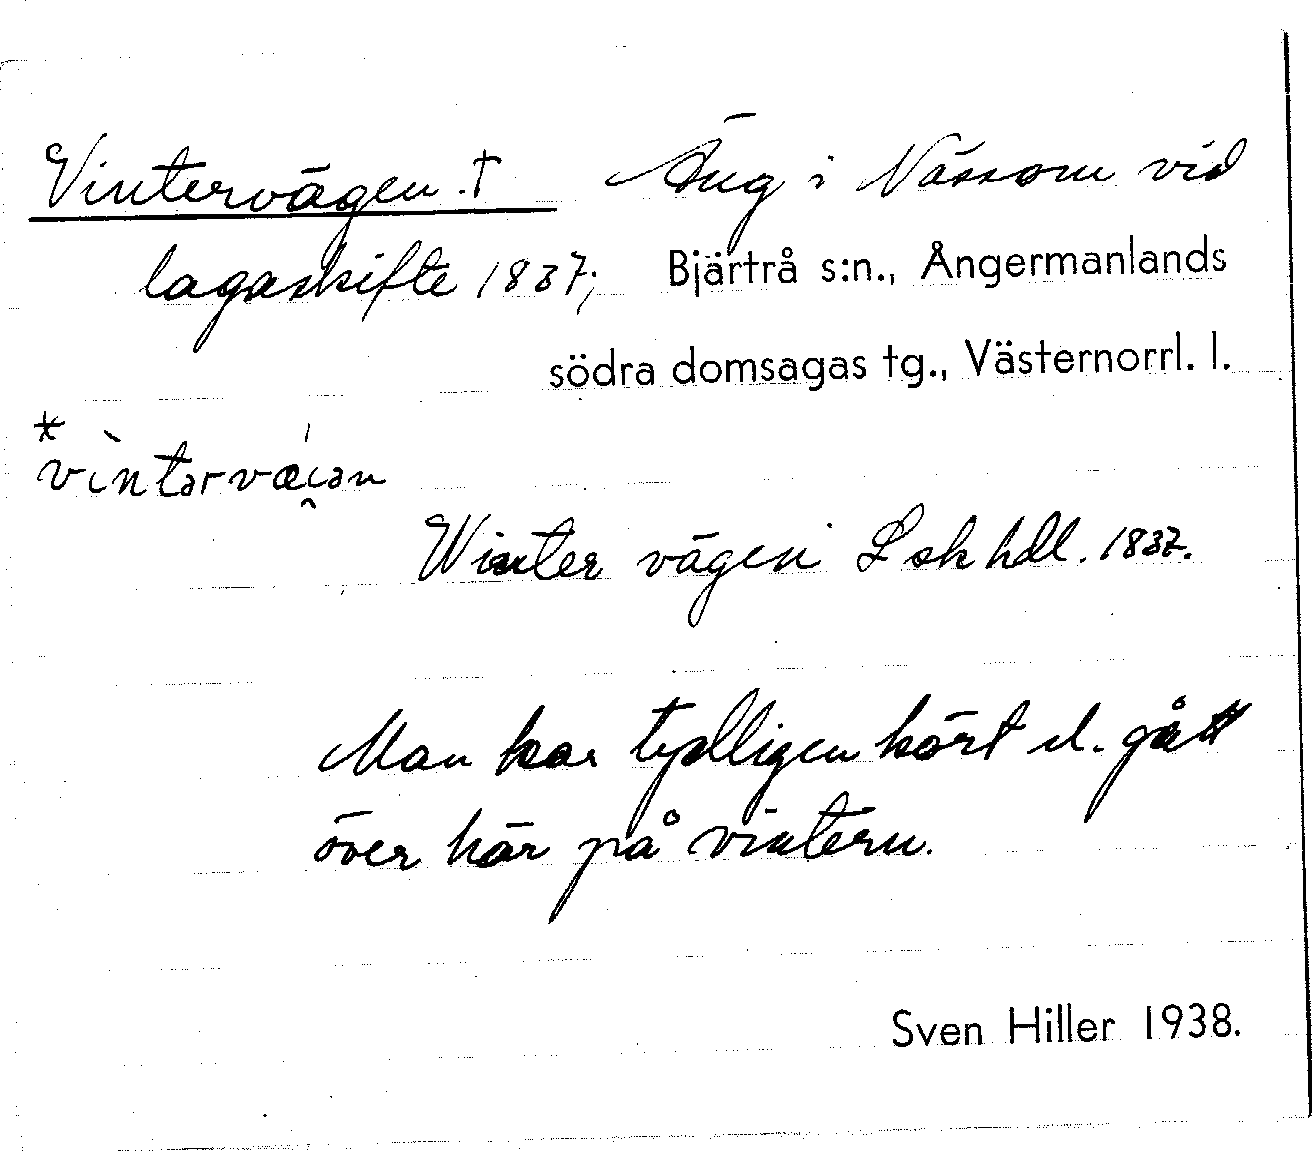 Vintervägen † Äng i Nässom vid
lagaskifte 1837; Bjärtrå s:n., Ångermanlands
södra domsagas tg., Västernorrl. l.
*vìntərvæ̀i̯ən
Winter vägen L sk hdl. 1837.
Man har tydligen kört el. gått
över här på vintern.
Sven Hiller 1938.